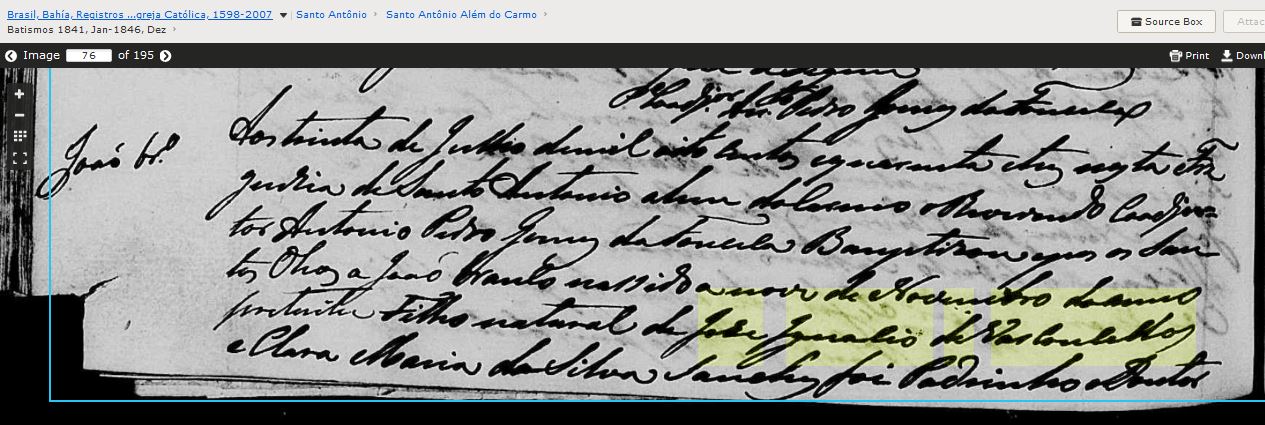 Brasil, Bahía, Registros ...greja Católica, 1598-2007 Santo Antônio Santo Antônio Além do Carmo
Batismos 1841, Jan-1846, Dez
Source Box
Attac
Image 76 of 195
Print
Downl
Pedro Gomes da Fonceca
João br.º
Aos trinta de Julho de mil oito centos e quarenta e tres nesta Fre
guezia de Santo Antonio alem do Carmo o Reverendo Coadju=
tor Antonio Pedro Gomes da Fonceca Bauptizou e pos os San
tos Olios a João branco nassido a nove de Novembro do anno
preterito Filho natural de Jose Ignacio de Vasconcellos
e Clara Maria da Silva Sanches foi Padrinho o Doutor